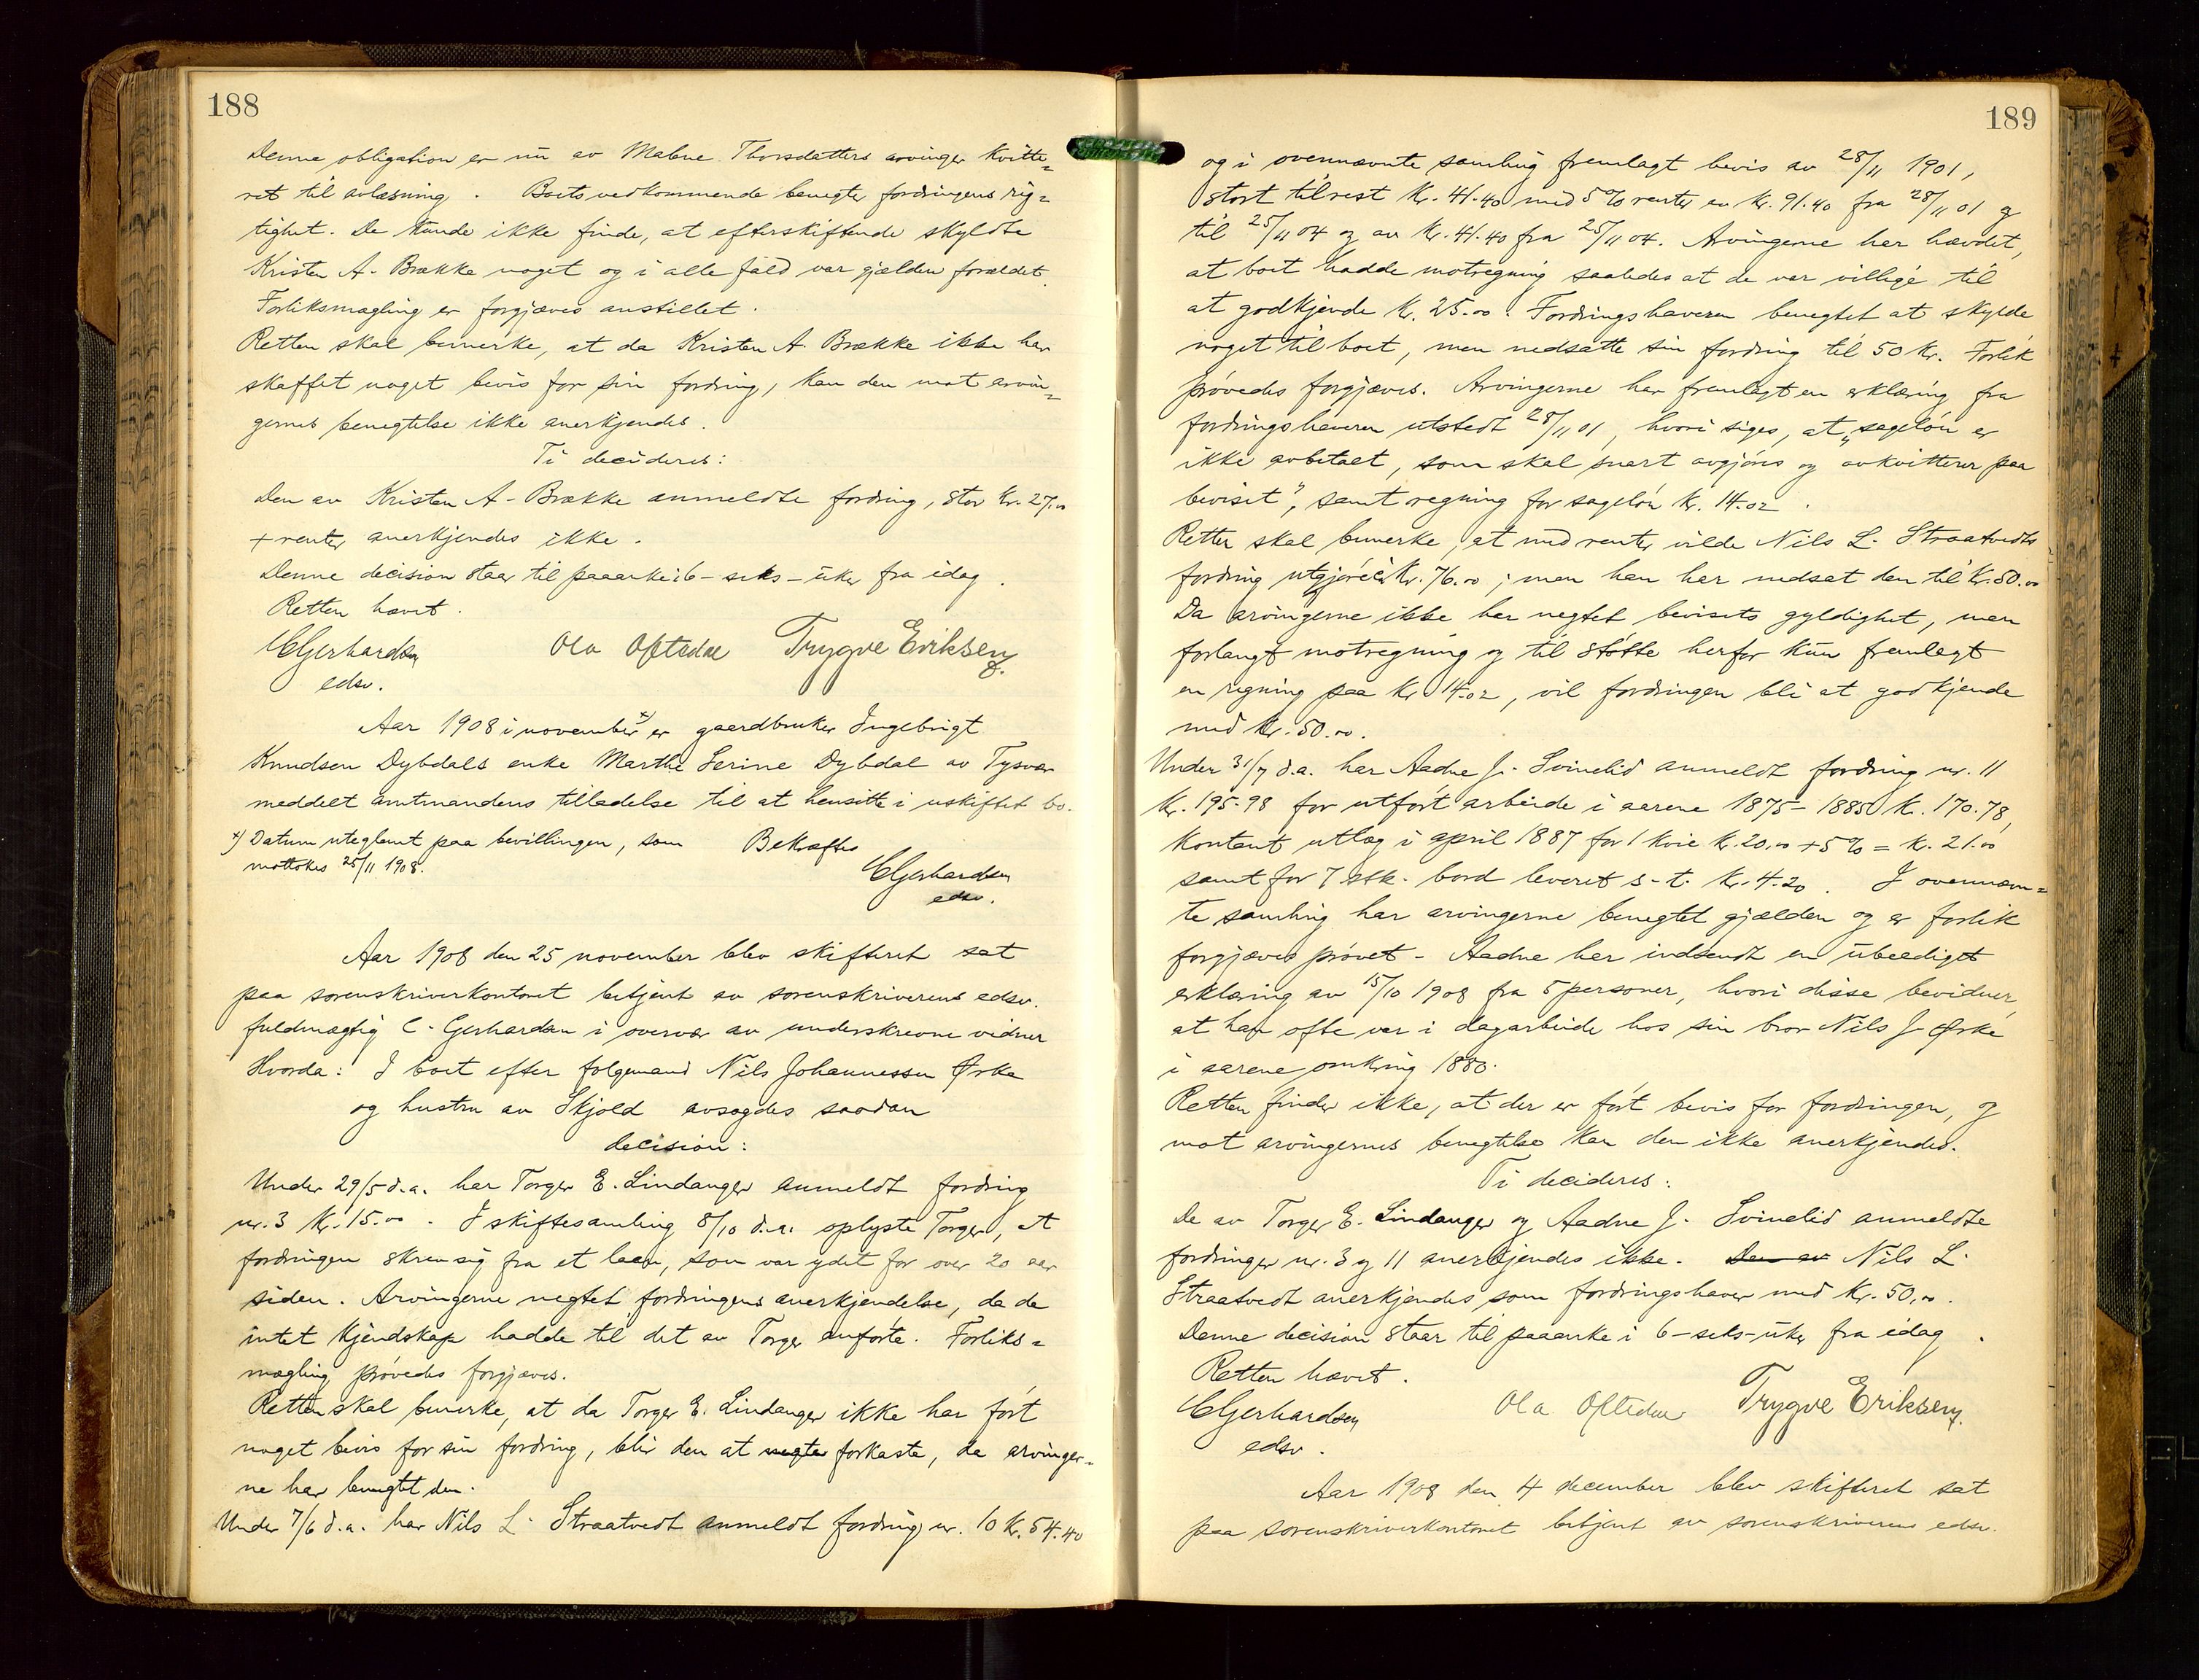 188
Denne obligation er nu av Malene Thorsdatters arvinger kvitte=
ret til avlæsning. Boets vedkommende benegter fordringens rig=
tighet. De kunde ikke finde, at efterskiftende skyldte
Kristen A. Brække noget og i alle fald var gjælden forældet.
Forliksmægling er forgjæves anstillet.
Retten skal bemerke, at da Kristen A. Brække ikke har
skaffet noget bevis for sin fordring, kan den mot arvin=
gernes benegtelse ikke anerkjendes.
Ti decideres:
Den av Kristen A. Brække anmeldte fordring, stor Kr. 27.00
+ renter anerkjendes ikke.
Denne decision staar til paaanke i 6-seks-uker fra idag.
Retten hævet.
CGerhardsen Ola Oftedal Trygve Eriksen
edsv.
Aar 1908 i november x) er gaardbruker Ingebrigt
Knudsen Dybdals enke Marthe Serine Dybdal av Tysvær
meddelt amtmandens tilladelse til at hensitte i uskiftet bo.
x) Datum uteglemt paa bevillingen, som Bekræftes
mottokes 25/11 1908. CGerhardsen
edsv.
Aar 1908 den 25 november blev skifteret sat
paa sorenskriverkontoret betjent av sorenskriverens edsv.
fuldmægtig C. Gerhardsen i overvær av underskrevne vidner
Hvorda: I boet efter folgemand Nils Johannessen Ørke
og hustru av Skjold avsagdes saadan
decision:
Under 29/5 d.a. har Torger E. Lindanger anmeldt fordring
nr. 3 Kr. 15.00. I skiftesamling 8/10 d.a. oplyste Torger, at
fordringen skrev sig fra et laan, som var ydet for over 20 aar
siden. Arvingerne negtet fordringens anerkjendelse, da de
intet kjendskap hadde til det av Torger anførte. Forliks=
mægling prøvedes forgjæves.
Retten skal bemerke, at da Torger E. Lindanger ikke har ført
noget bevis for sin fordring, blir den at negte forkaste, da arvinger=
ne har benegtet den.
Under 7/6 d.a. har Nils L. Straatvedt anmeldt fordring nr. 10 Kr. 54.40
189
og i ovennævnte samling fremlagt bevis av 28/11 1901,
stort tilrest Kr. 41.40 med 5% renter av Kr. 91.40 fra 28/11 01 og
til 25/11 04 og av Kr. 41.40 fra 25/11 04. Arvingerne har hævdet,
at boet hadde motregning saaledes at de var villige til
at godkjende Kr. 25.00. Fordringshaveren benegtet at skylde
noget til boet, men nedsatte sin fordring til 50 Kr. Forlik
prøvedes forgjæves. Arvingerne har fremlagt en erklæring fra
fordringshaveren utstedt 28/11 01, hvori siges, at "sageløn er
ikke avbetalt, som skal snart avgjøres og avkvitterer paa
beviset", samt regning for sageløn Kr. 14.02.
Retten skal bemerke, at med renter vilde Nils L. Straatvedts
fordring utgjøre ca Kr. 76.00; men han har nedsat den til Kr. 50.00
Da arvingerne ikke har negtet bevisets gyldighet, men
forlangt motregning og til støtte herfor kun fremlagt
en regning paa Kr. 14.02, vil fordringen bli at godkjende
med Kr. 50.00.
Under 31/7 d.a. har Aadne J. Svinelid anmeldt fordring nr. 11
Kr. 195.98 for utført arbeide i aarene 1875-1885 Kr. 170.78,
kontant utlæg i april 1887 for 1 kvie Kr. 20.00 + 5% = Kr. 21.00
samt for 7 stk. bord leveret s.t. Kr. 4.20. I ovennævn=
te samling har arvingerne benegtet gjælden og er forlik
forgjæves prøvet. Aadne har indsendt en ubeediget
erklæring av 15/10 1908 fra 5 personer, hvori disse bevidner,
at han ofte var i dagarbeide hos sin bror Nils J. Ørke
i aarene omkring 1880.
Retten finder ikke, at der er ført bevis for fordringen, og
mot arvingernes benegtelse kan den ikke anerkjendes.
Ti decideres:
De av Torger E. Lindanger og Aadne J. Svinelid anmeldte
fordringer nr. 3 og 11 anerkjendes ikke. Den av Nils L.
Straatvedt anerkjendes som fordringshaver med Kr. 50.00.
Denne decision staar til paaanke i 6-seks-uker fra idag.
Retten hævet.
CGerhardsen Ola Oftedal Trygve Eriksen.
edsv.
Aar 1908 den 4 december blev skifteret sat
paa sorenskriverkontoret betjent av sorenskriverens edsv.